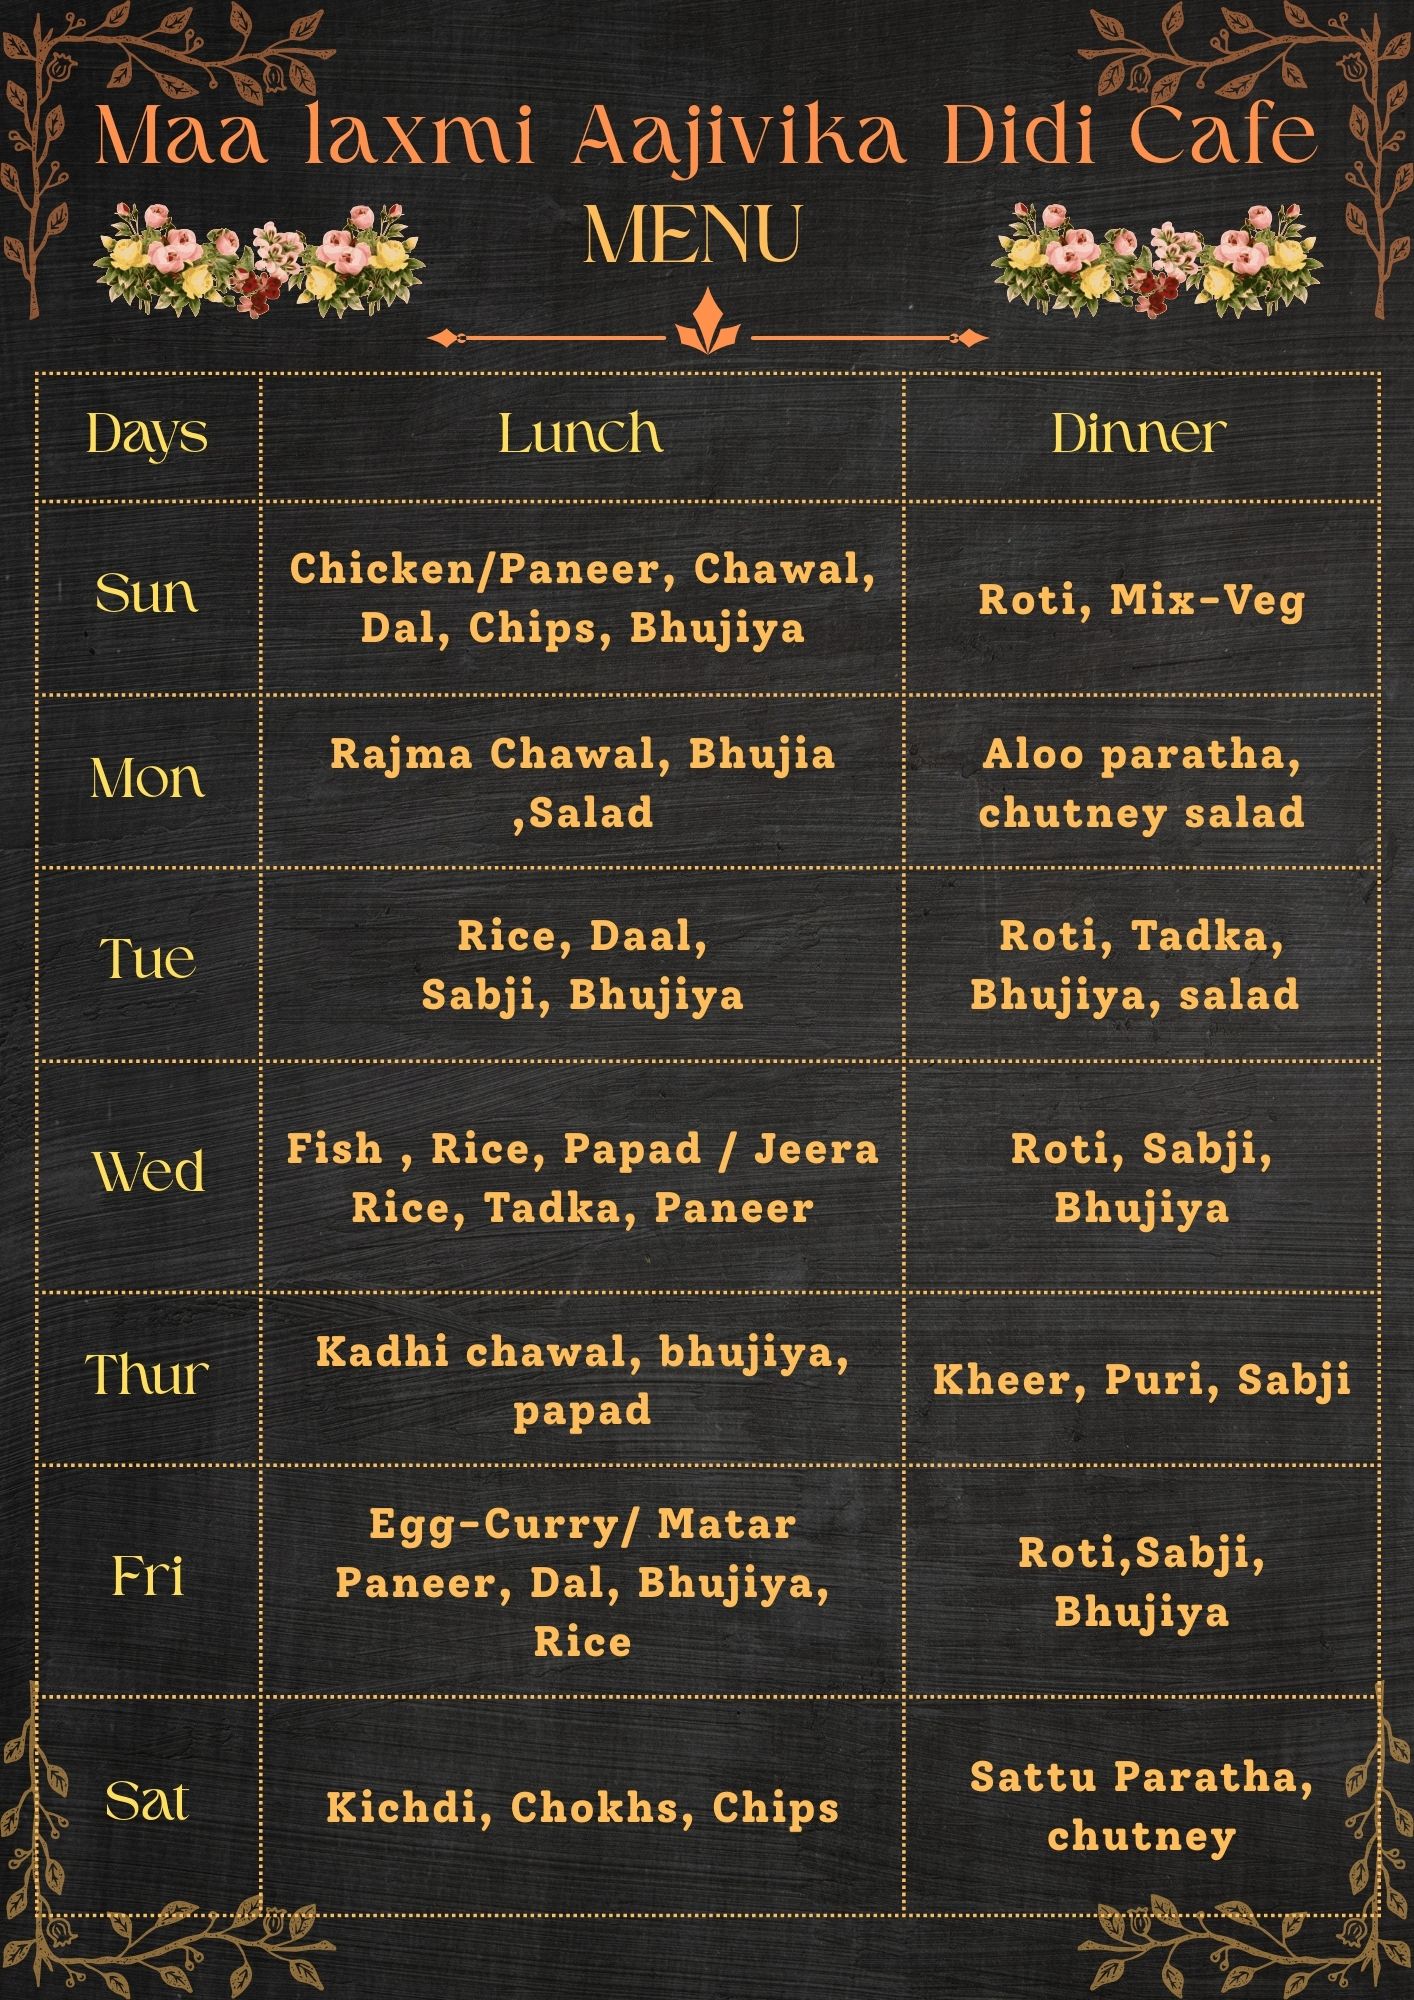 Maa laxmi Aajivika Didi Cafe
MENU
Days
Lunch
Dinner
Sun
Chicken/Paneer, Chawal,
Dal, Chips, Bhujiya
Roti, Mix-Veg
Mon
Rajma Chawal, Bhujia
,Salad
Aloo paratha,
chutney salad
Tue
Rice, Daal,
Sabji, Bhujiya
Roti, Tadka,
Bhujiya, salad
Wed
Fish , Rice, Papad / Jeera
Rice, Tadka, Paneer
Roti, Sabji,
Bhujiya
Thur
Kadhi chawal, bhujiya,
papad
Kheer, Puri, Sabji
Fri
Egg-Curry/ Matar
Paneer, Dal, Bhujiya,
Rice
Roti,Sabji,
Bhujiya
Sat
Kichdi, Chokhs, Chips
Sattu Paratha,
chutney